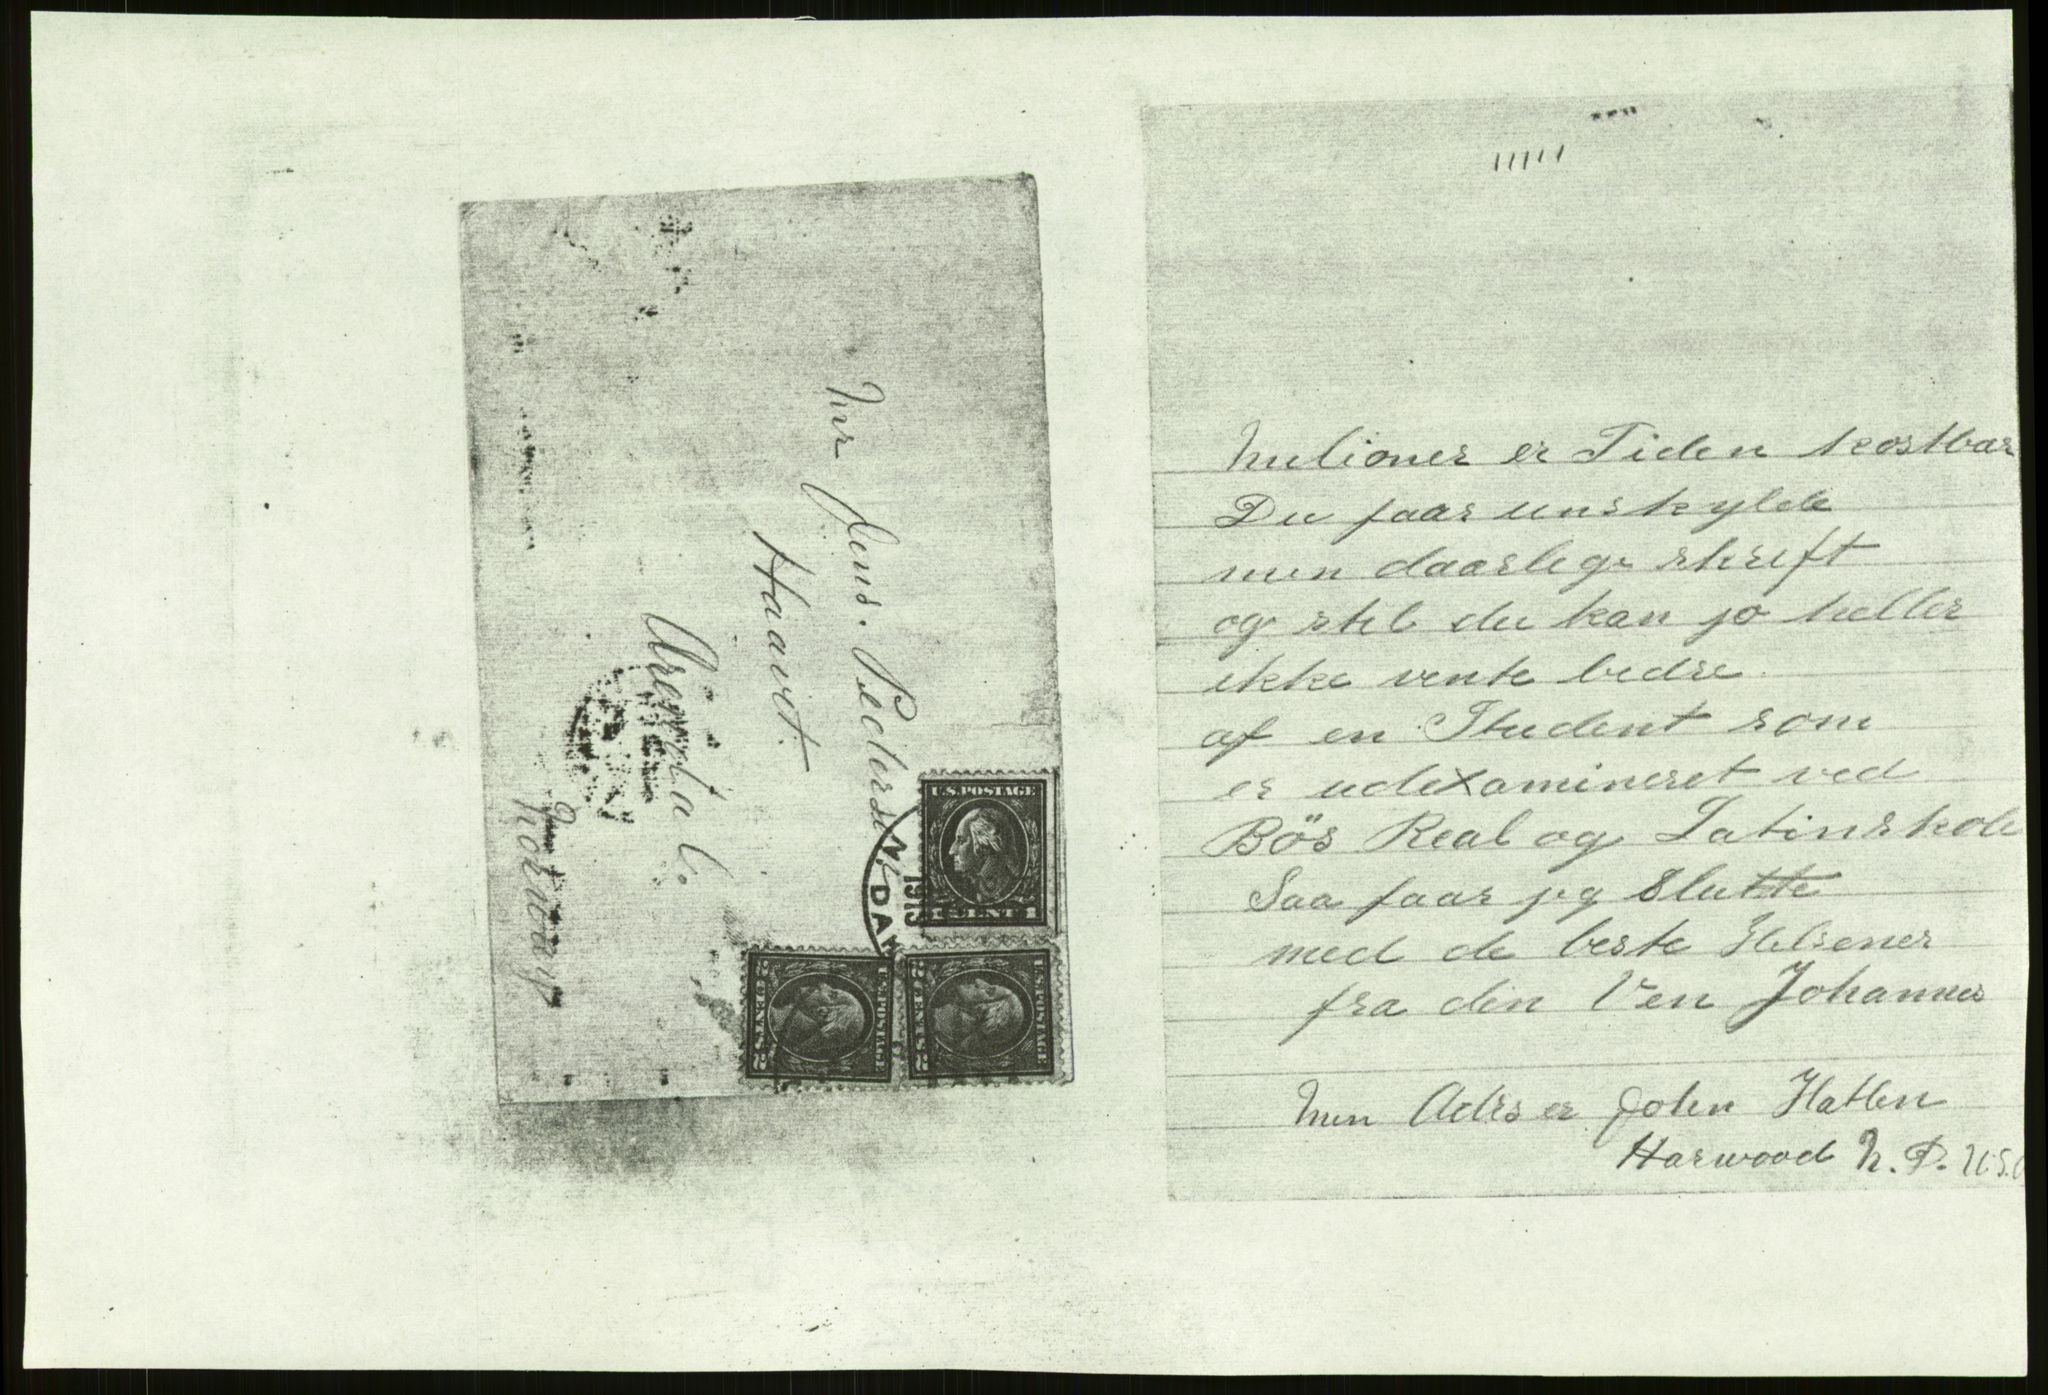 Mr Jens. Pedersen
Haavet
Arendal.
Norway
N. DAK
1915
U.S. POSTAGE
1 CENT 1
U.S. POSTAGE
2 CENTS 2
U.S. POSTAGE
2 CENTS 2
Milioner er Tiden kostbar
Du faar unskylde
min daarlige skrift
og stil du kan jo heller
ikke vente bedre.
af en Student som
er udexamineret ved
Bös Real og Latinskole
Saa faar jeg Slutte
med de beste Helsener
fra din Ven Johannes
Min Adrs er John Hatlen
Harwood N. D. U.S.